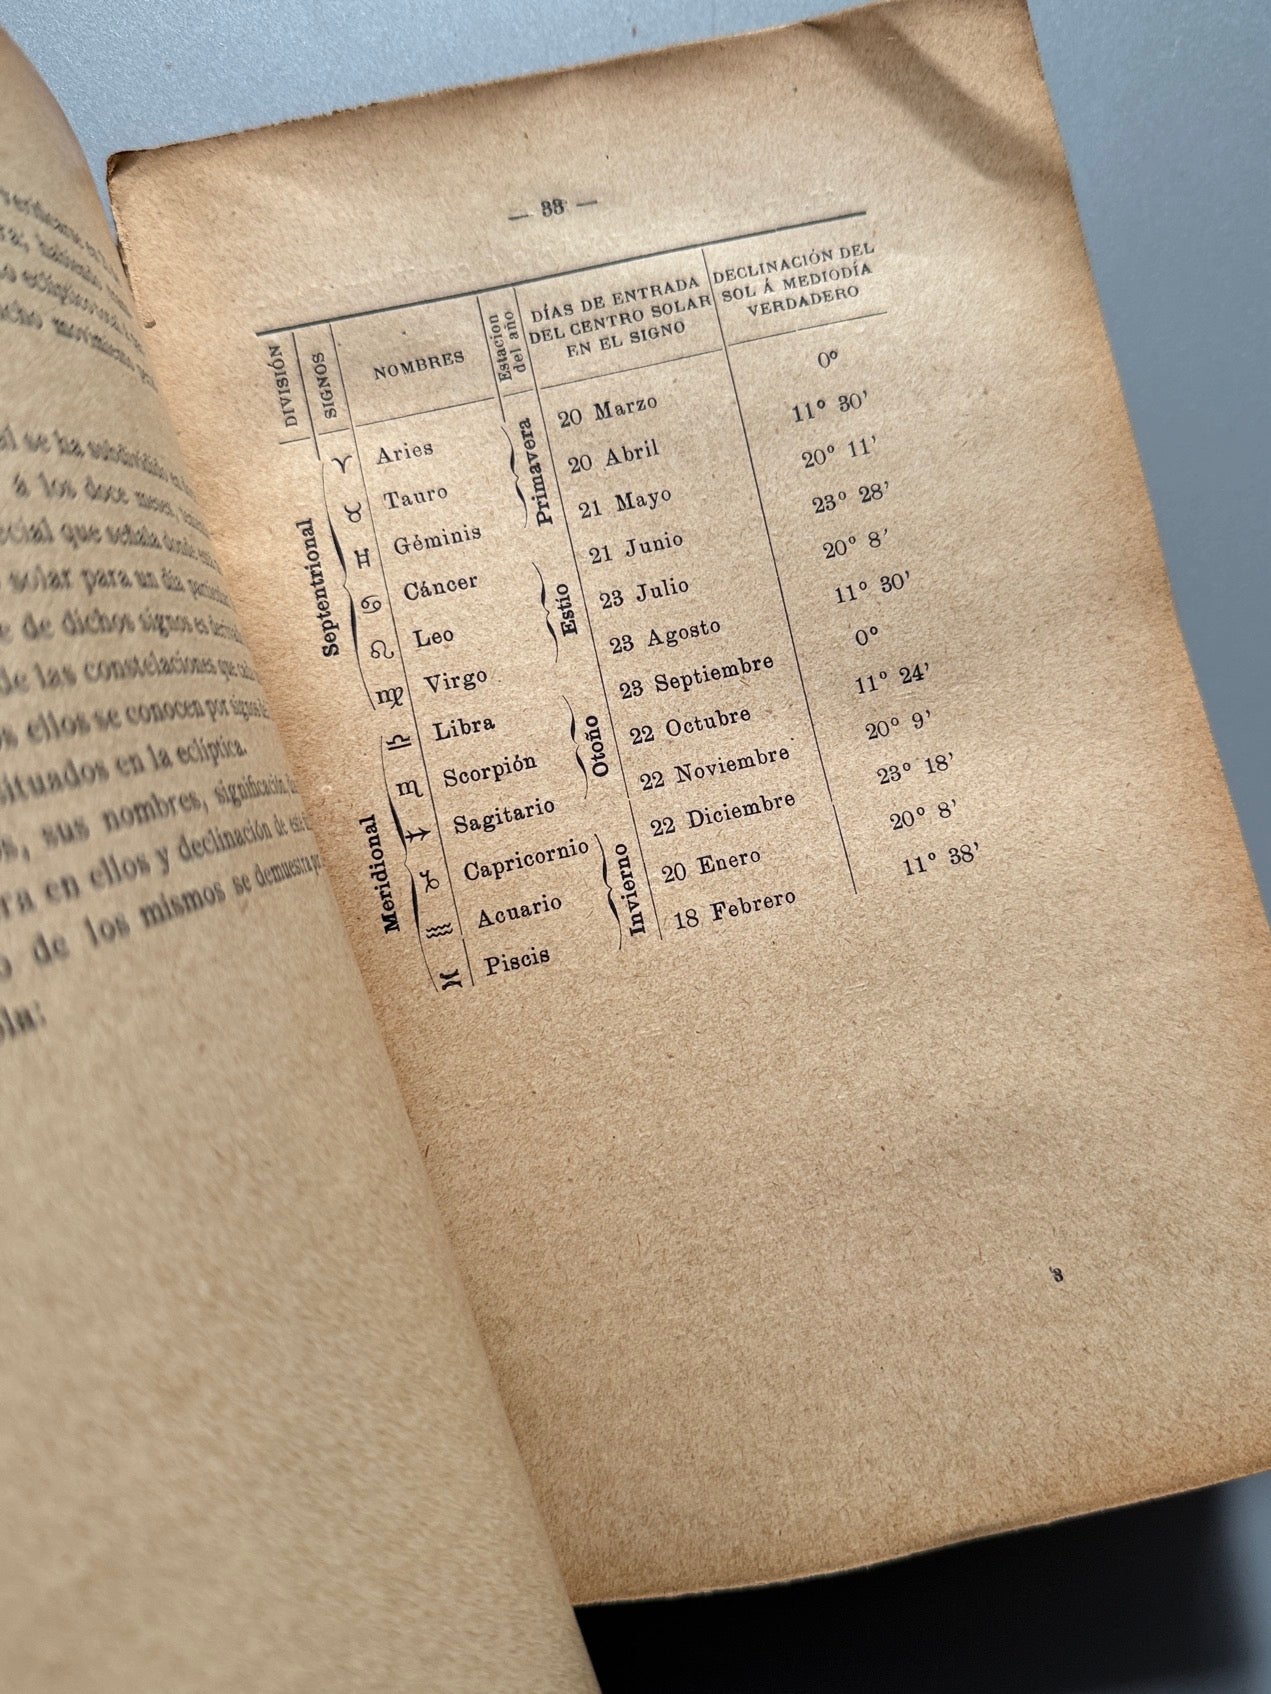 al se ha subdividido en
á los doce meses,
ecial que señala donde
solar para un día particular
e de dichos signos es
de las constelaciones que
os ellos se conocen por signos
situados en la eclíptica.
os, sus nombres, significación
ra en ellos y declinación de
o de los mismos se demuestra
ola:
— 33 —
DIVISIÓN SIGNOS NOMBRES Estacion del año DÍAS DE ENTRADA DEL CENTRO SOLAR EN EL SIGNO DECLINACIÓN DEL SOL Á MEDIODÍA VERDADERO
Septentrional
♈ Aries Primavera 20 Marzo 0º
♉ Tauro 20 Abril 11º 30'
♓ Géminis 21 Mayo 20º 11'
♋ Cáncer Estio 21 Junio 23º 28'
♌ Leo 23 Julio 20º 8'
♍ Virgo 23 Agosto 11º 30'
Meridional
♎ Libra Otoño 23 Septiembre 0º
♏ Scorpión 22 Octubre 11º 24'
♐ Sagitario 22 Noviembre 20º 9'
♑ Capricornio Invierno 22 Diciembre 23º 18'
♒ Acuario 20 Enero 20º 8'
♓ Piscis 18 Febrero 11º 38'
3